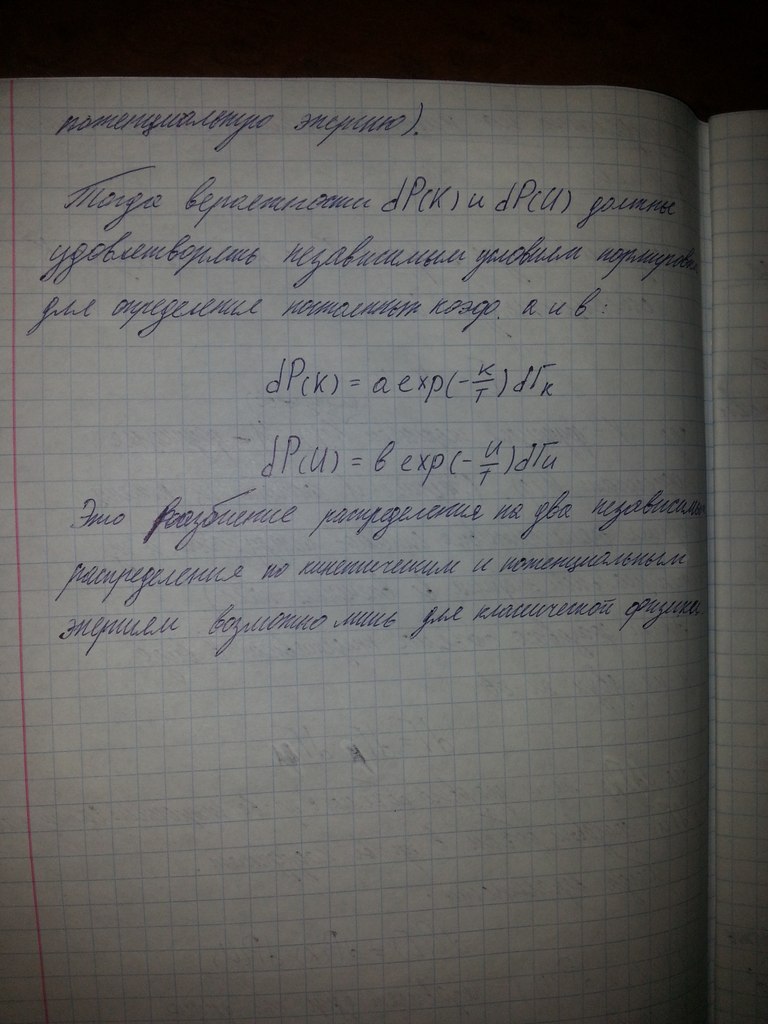 потенциальную энергию).
Тогда вероятности dP(K) и dP(U) должны
удовлетворять независимым условиям нормировки
для определения постоянных коэф. a и b:
dP(K) = a exp(-K/T) dГк
dP(U) = b exp(-U/T) dГu
Это разбиение распределения на два независимых
распределения по кинетическим и потенциальным
энергиям возможно лишь для классической физики.